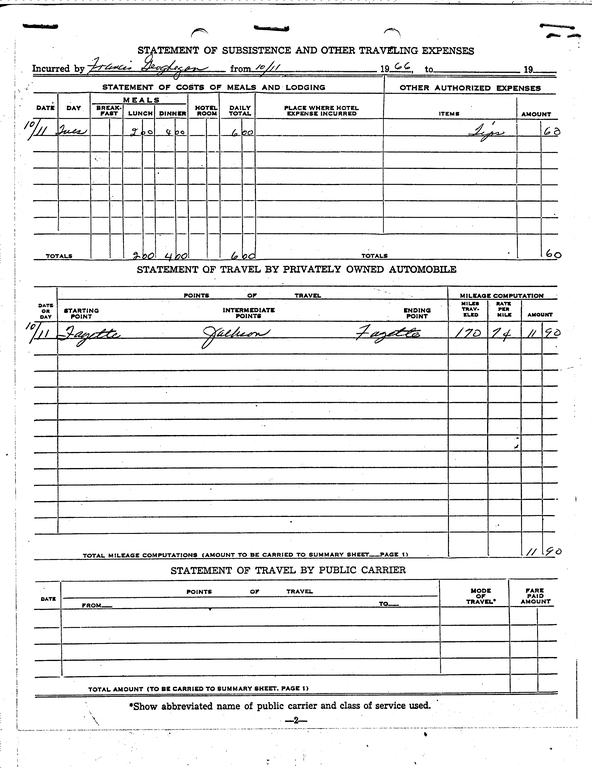 STATEMENT OF SUBSISTENCE AND OTHER TRAVELING EXPENSES
Incurred by Francis Geoghegan from 10/11 1966, to 19
STATEMENT OF COSTS OF MEALS AND LODGING OTHER AUTHORIZED EXPENSES
DATE DAY MEALS HOTEL ROOM DAILY TOTAL PLACE WHERE HOTEL EXPENSE INCURRED ITEMS AMOUNT
BREAK-FAST LUNCH DINNER
10/11 Tues 2 00 4 00 6 00 Tips 60
TOTALS 2 00 4 00 6 00 TOTALS 60
STATEMENT OF TRAVEL BY PRIVATELY OWNED AUTOMOBILE
DATE OR DAY POINTS OF TRAVEL MILEAGE COMPUTATION
STARTING POINT INTERMEDIATE POINTS ENDING POINT MILES TRAV-ELED RATE PER MILE AMOUNT
10/11 Fayette Jackson Fayette 170 7¢ 11 90
TOTAL MILEAGE COMPUTATIONS (AMOUNT TO BE CARRIED TO SUMMARY SHEET—PAGE 1) 11 90
STATEMENT OF TRAVEL BY PUBLIC CARRIER
DATE POINTS OF TRAVEL MODE OF TRAVEL* FARE PAID AMOUNT
FROM— TO—
TOTAL AMOUNT (TO BE CARRIED TO SUMMARY SHEET. PAGE 1)
*Show abbreviated name of public carrier and class of service used.
—2—